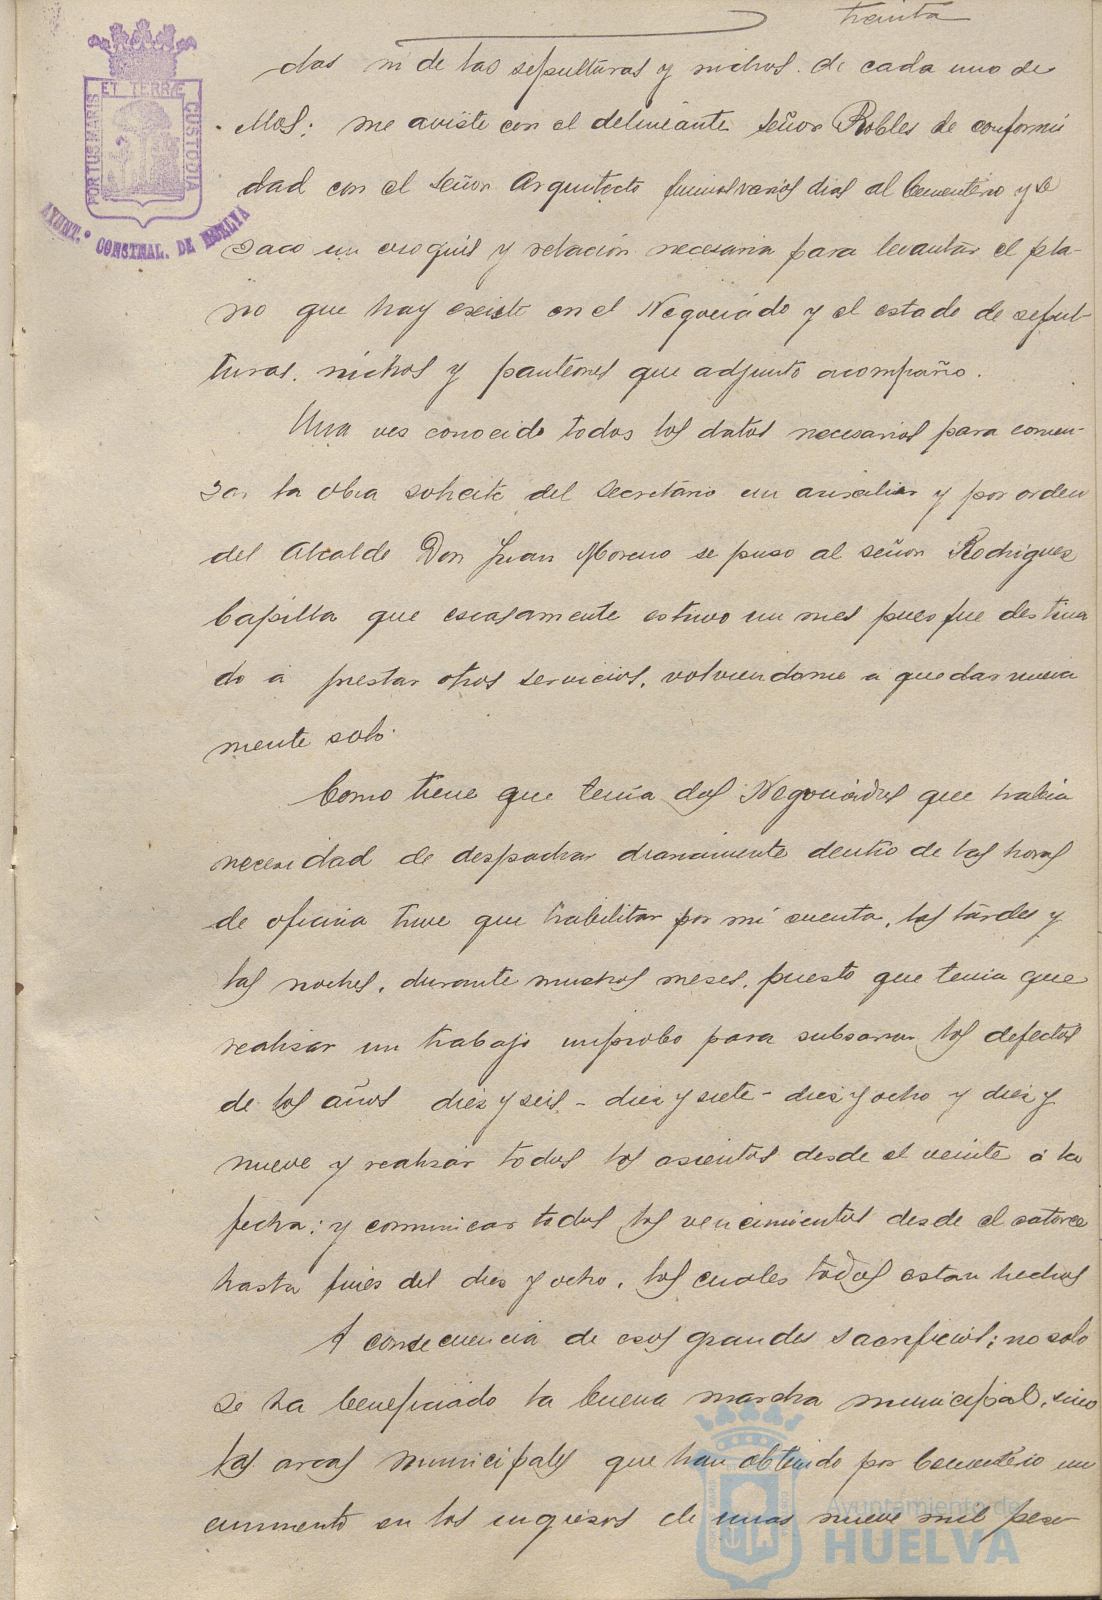 treinta
das ni de las sepulturas y nichos de cada uno de
ellos; me aviste con el delineante señor Robles de conformi
dad con el señor Arquitecto fuimos varios dias al Cementerio y se
saco un croquis y relación necesaria para levantar el pla-
no que hay existe en el Negociado y el estado de sepul-
turas, nichos y panteones que adjunto acompaño.
Una ves conocido todos los datos necesarios para comen-
sar la obra solicité del Secretario un auxiliar y por orden
del Alcalde Don Juan Moreno se puso al señor Rodriguez
Capilla que escasamente estuvo un mes pues fue destina
do a prestar otros servicios, volviendome a quedar nueva
mente solo.
Como tiene que tenia dos Negociados que habia
necesidad de despachar diariamente dentro de las horas
de oficina tuve que habilitar por mi cuenta, las tardes y
las noches, durante muchos meses, puesto que tenia que
realisar un trabajo improbo para subsanar los defectos
de los años dies y seis - dies y siete - dies y ocho y dies y
nueve y realisar todos los asientos desde el veinte á la
fecha; y comunicar todos los vencimientos desde el catorce
hasta fines del dies y ocho, los cuales todos estan hechos
A consecuencia de esos grandes sacrificios; no solo
se ha beneficiado la buena marcha municipal, sino
las arcas municipales que han obtenido por Cementerio un
aumento en los ingresos de unas nueve mil pese-
PORTUS MARIS ET TERRÆ CUSTODIA
AYUNT.º CONSTNAL. DE HUELVA
Ayuntamiento de
HUELVA